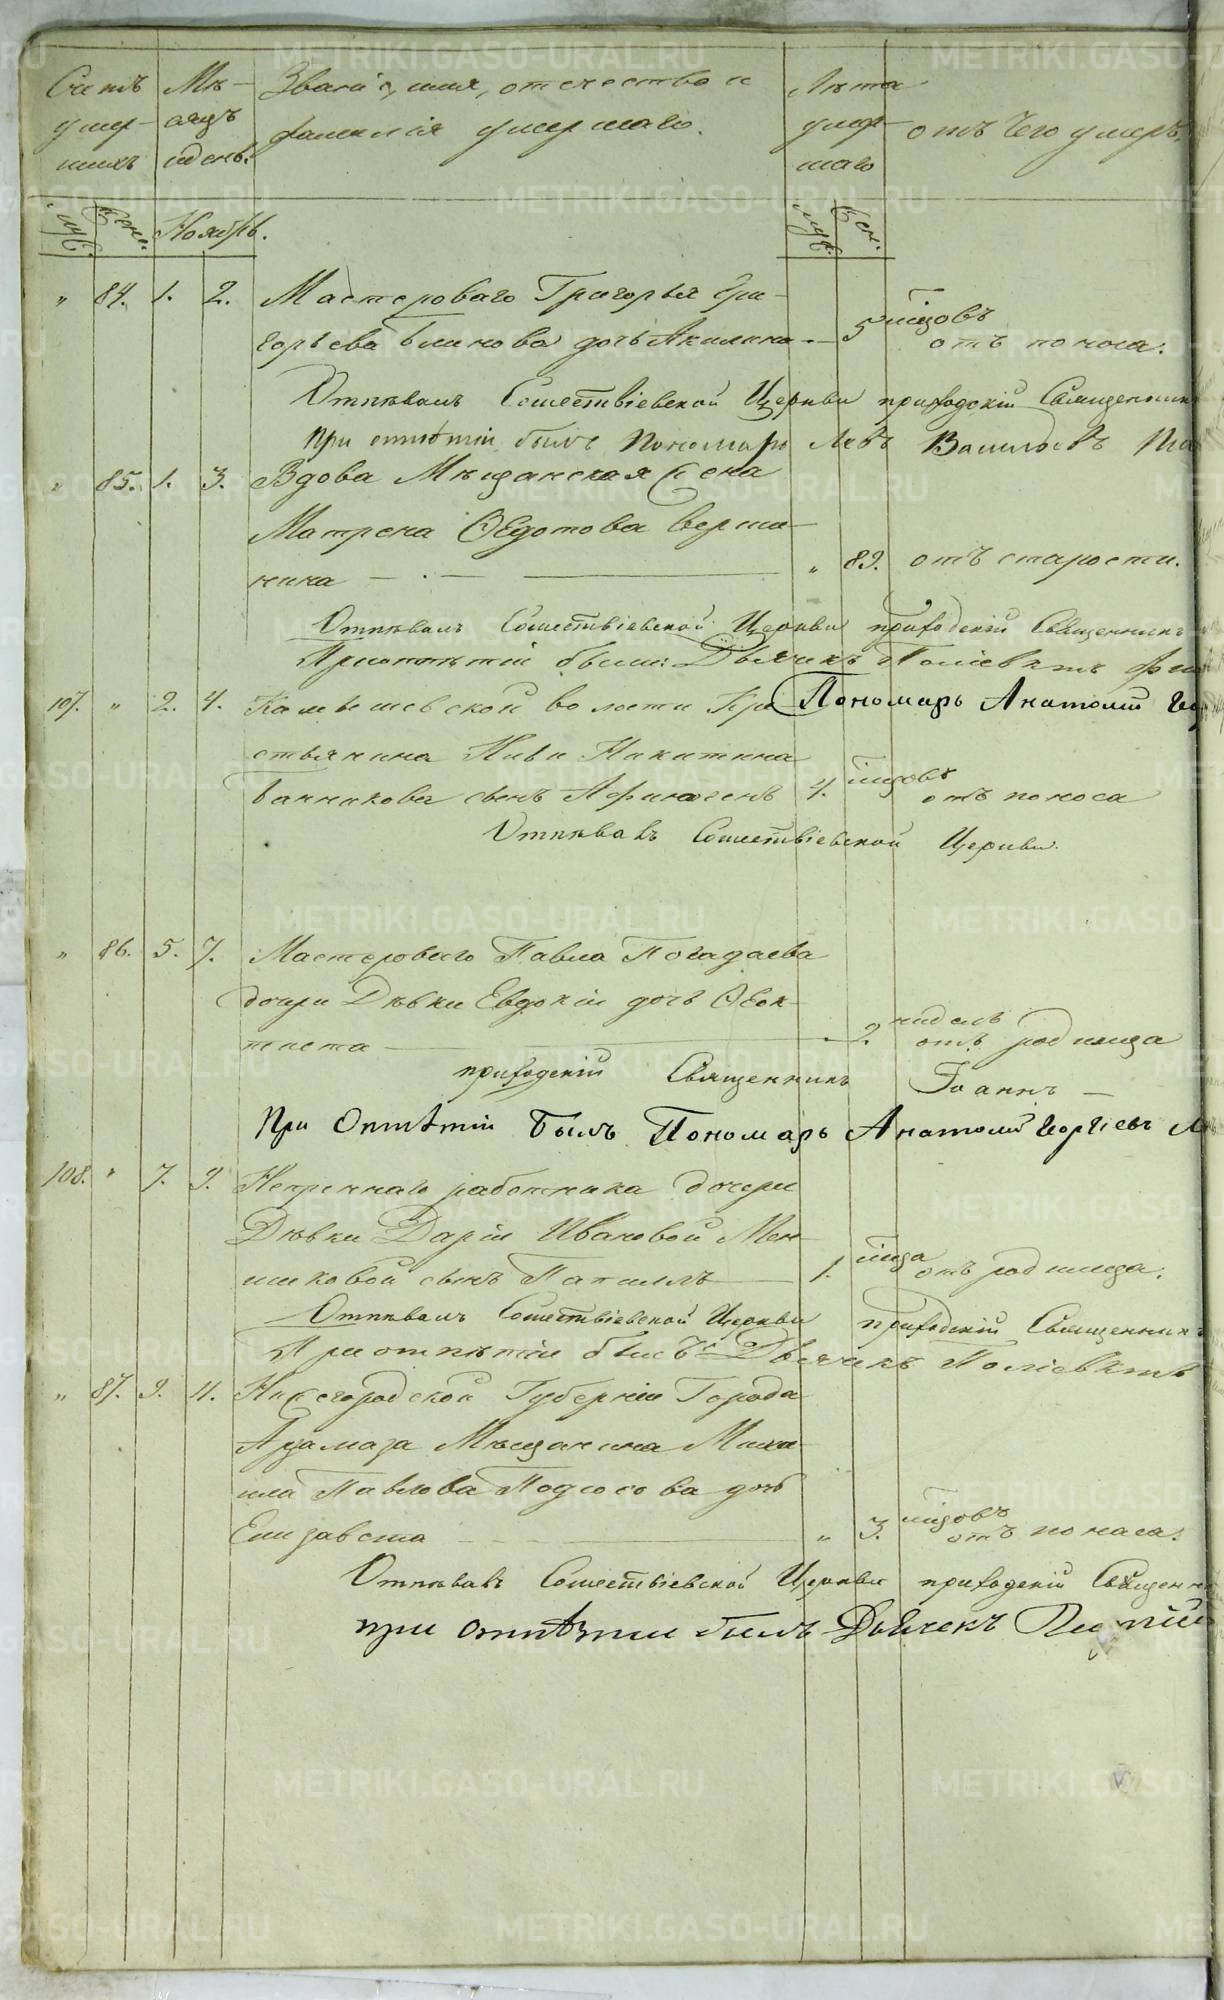 Счетъ умер- шихъ
Мѣ- сяцъ и день.
Званіе, имя, отечество и фамилія умершаго.
Лѣта умер- шаго
отъ чего умеръ.
муж. жен. Ноябрь. муж. жен.
„ 84. 1. 2. Мастероваго Григорья Гри-
горьева Блинова дочь Акилина — 5 мѣсяцовъ отъ поноса.
Отпѣвалъ Сошествіевской Церкви приходскій Священникъ
При отпѣтіи былъ Пономарь Левъ Васильевъ
„ 85. 1. 3. Вдова Мѣщанская жена
Матрена Ѳедотова Верши-
нина — „ 89. отъ старости.
Отпѣвалъ Сошествіевской Церкви приходскій Священникъ
При отпѣтіи были: Дьячекъ Поліевктъ
Пономарь Анатолій
107. „ 2. 4. Камышевской волости Кре-
стьянина Никитина
Банникова сынъ Афиногенъ 4. мѣсяцовъ отъ поноса
Отпѣвалъ Сошествіевской Церкви.
„ 86. 5. 7. Мастероваго Павла Погадаева
дочери Дѣвки Евдокіи дочь Ѳеок-
тиста — 2. нидель отъ родимца
приходскій Священникъ Іоаннъ —
При Отпѣтіи былъ Пономарь Анатолій Георгіевъ
108. „ 7. 9. Непреннаго работника дочери
Дѣвки Даріи Ивановой Мен-
шиковой сынъ — 1. мѣсяца отъ родимца.
Отпѣвалъ Сошествіевской Церкви приходскій Священникъ
При отпѣтіи былъ Дьячекъ Поліевктъ
„ 87. 9. 11. Нижегородской Губерніи Города
Арзамаза Мѣщанина Миха-
ила Павлова Подсосова дочь
Елизавета — „ 3. мѣсяцовъ отъ поноса.
Отпѣвалъ Сошествіевской Церкви приходскій Священни
при отпѣтіи былъ Дьячекъ
METRIKI.GASO-URAL.RU